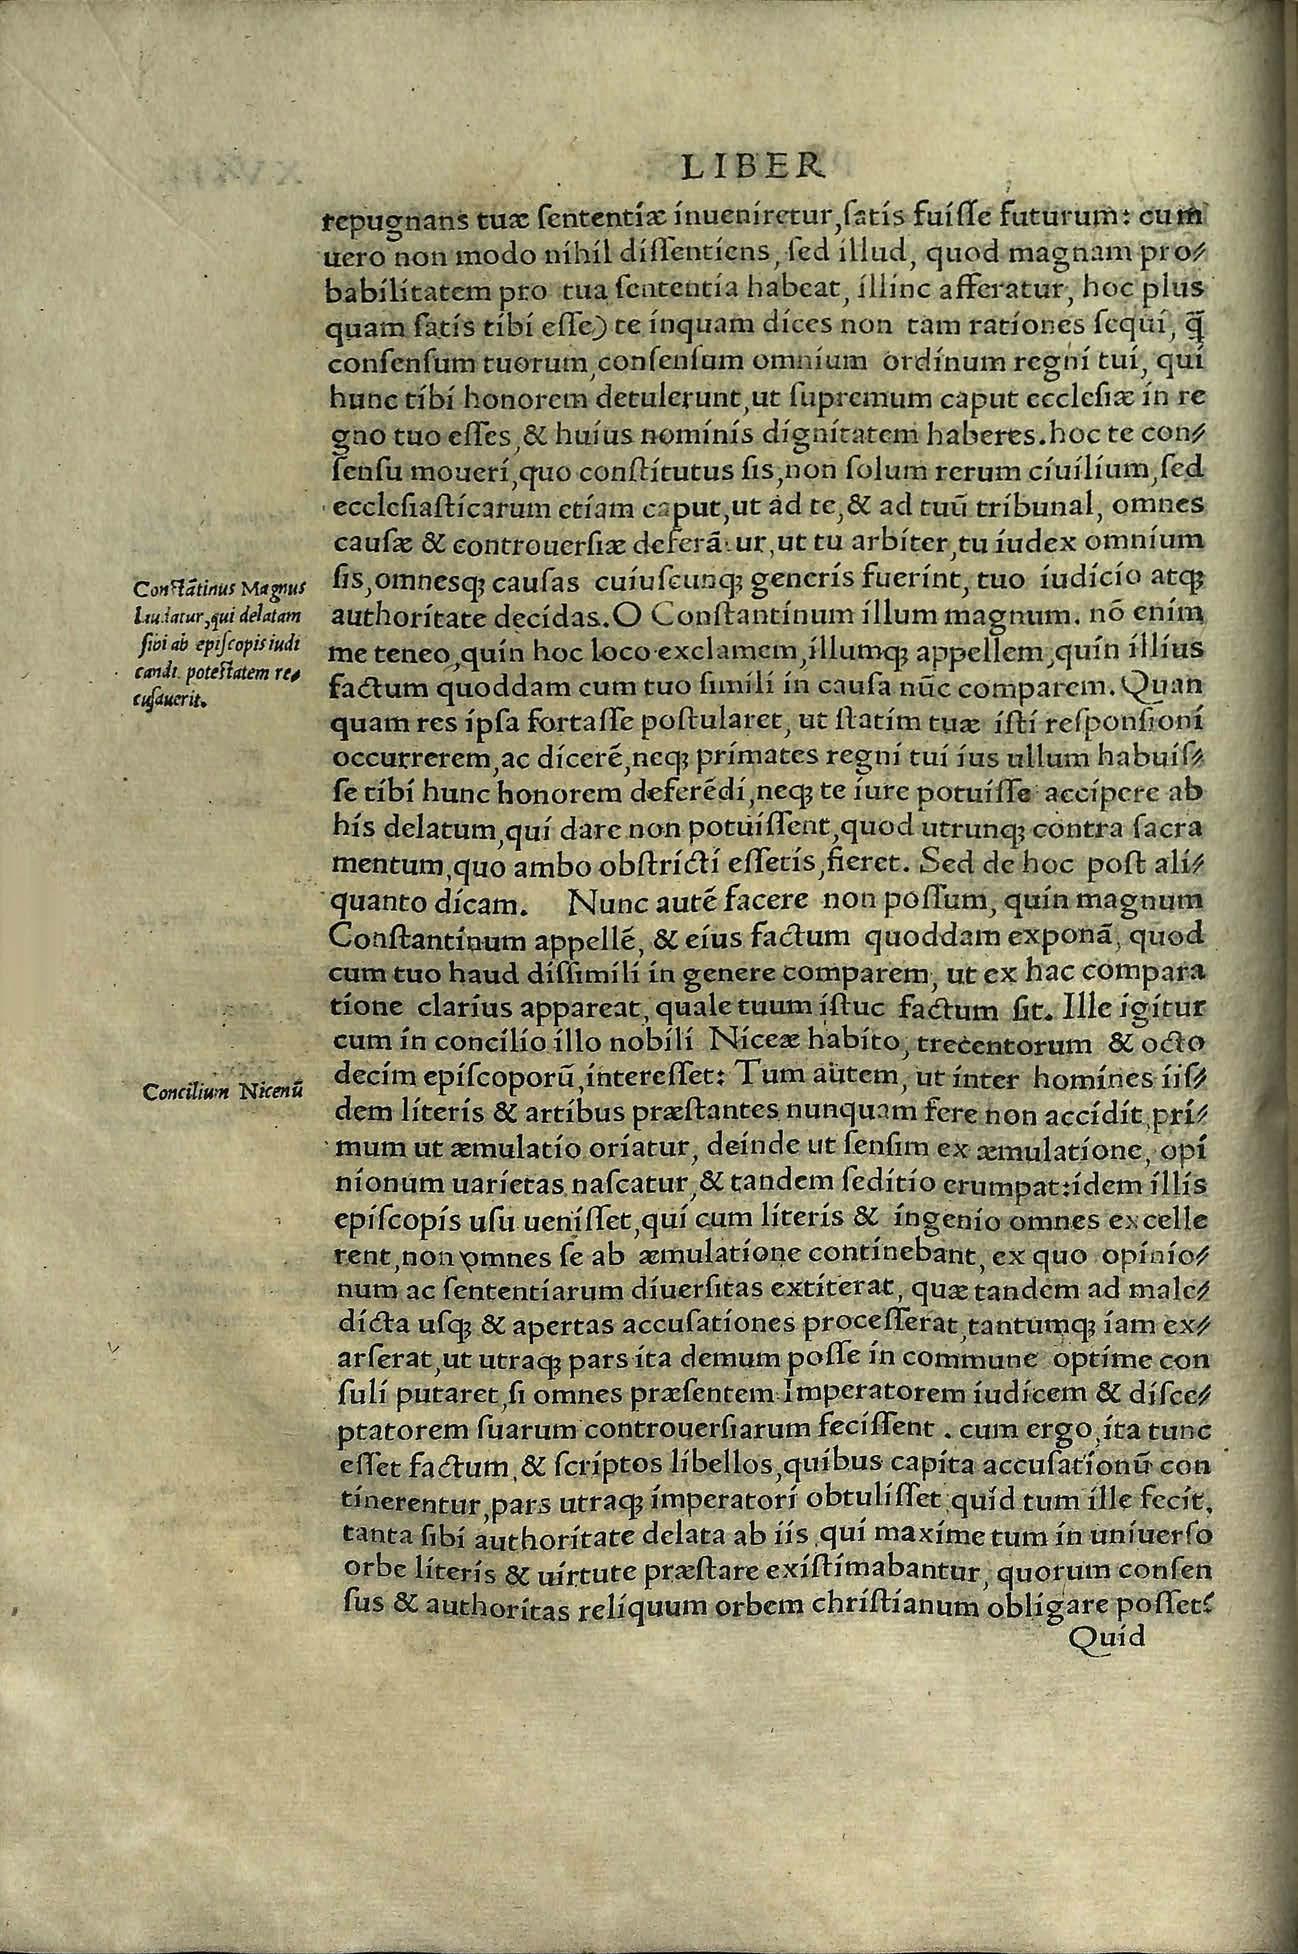 LIBER
repugnans tuæ ſententiæ inueniretur, ſatis fuiſſe futurum: cum
uero non modo nihil diſſentiens, ſed illud, quod magnam pro⸗
babilitatem pro tua ſententia habeat, illinc afferatur, hoc plus
quam ſatis tibi eſſe) te inquam dices non tam rationes ſequi, q̃
conſenſum tuorum, conſenſum omnium ordinum regni tui, qui
hunc tibi honorem detulerunt, ut ſupremum caput eccleſiæ in re
gno tuo eſſes, & huius nominis dignitatem haberes. hoc te con⸗
ſenſu moueri, quo conſtitutus ſis, non ſolum rerum ciuilium, ſed
eccleſiaſticarum etiam caput, ut ad te, & ad tuũ tribunal, omnes
cauſæ & controuerſiæ deferãtur, ut tu arbiter, tu iudex omnium
ſis, omnesqꝫ cauſas cuiuſcunqꝫ generis fuerint, tuo iudicio atqꝫ
authoritate decidas. O Conſtantinum illum magnum. nõ enim
me teneo, quin hoc loco exclamem, illumqꝫ appellem, quin illius
factum quoddam cum tuo ſimili in cauſa nũc comparem. Quan
quam res ipſa fortaſſe poſtularet, ut ſtatim tuæ iſti reſponſioni
occurrerem, ac dicerẽ, neqꝫ primates regni tui ius ullum habuiſ⸗
ſe tibi hunc honorem deferẽdi, neqꝫ te iure potuiſſe accipere ab
his delatum, qui dare non potuiſſent, quod utrunqꝫ contra ſacra
mentum, quo ambo obſtricti eſſetis, fieret. Sed de hoc poſt ali⸗
quanto dicam. Nunc autẽ facere non poſſum, quin magnum
Conſtantinum appellẽ, & eius factum quoddam exponã, quod
cum tuo haud diſſimili in genere comparem, ut ex hac compara
tione clarius appareat, quale tuum iſtuc factum ſit. Ille igitur
cum in concilio illo nobili Niceæ habito, trecentorum & octo
decim epiſcoporũ, intereſſet: Tum autem, ut inter homines iiſ⸗
dem literis & artibus præſtantes nunquam fere non accidit, pri⸗
mum ut æmulatio oriatur, deinde ut ſenſim ex æmulatione, opi
nionum uarietas naſcatur, & tandem ſeditio erumpat: idem illis
epiſcopis uſu ueniſſet, qui cum literis & ingenio omnes excelle
rent, non omnes ſe ab æmulatione continebant, ex quo opinio⸗
num ac ſententiarum diuerſitas extiterat, quæ tandem ad male⸗
dicta uſqꝫ & apertas accuſationes proceſſerat, tantumqꝫ iam ex⸗
arſerat, ut utraqꝫ pars ita demum poſſe in commune optime con
ſuli putaret, ſi omnes præſentem Imperatorem iudicem & diſce⸗
ptatorem ſuarum controuerſiarum feciſſent. cum ergo, ita tunc
eſſet factum, & ſcriptos libellos, quibus capita accuſationũ con
tinerentur, pars utraqꝫ imperatori obtuliſſet, quid tum ille fecit,
tanta ſibi authoritate delata ab iis, qui maxime tum in uniuerſo
orbe literis & uirtute præſtare exiſtimabantur, quorum conſen
ſus & authoritas reliquum orbem chriſtianum obligare poſſet?
Quid
Conſtãtinus Magnus
laudatur, qui delatam
ſibi ab epiſcopis iudi
candi poteſtatem re⸗
cuſauerit.
Concilium Nicenũ